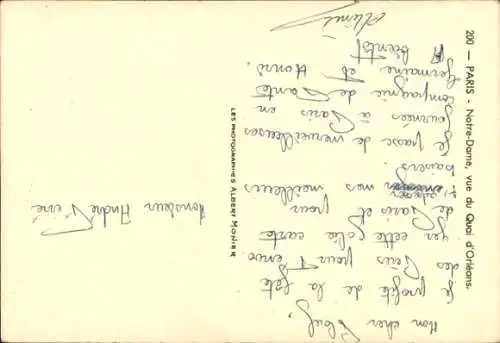 200 — PARIS - Notre-Dame, vue du Quai d'Orléans.
Mon cher
Je profite de la fête
des Pères pour t'envo
yer cette jolie carte
de Paris et pour
t'adresser nos meilleurs
baisers.
Je passe de merveilleuses
journées à Paris en
compagnie de Tante
Germaine et
A bientôt
LES PHOTOGRAPHIES ALBERT MONIER
Monsieur André